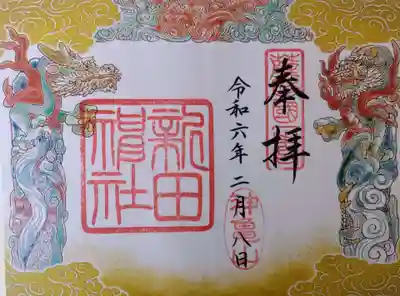 奉拝
令和六年 二月八日
新田神社
神龜山